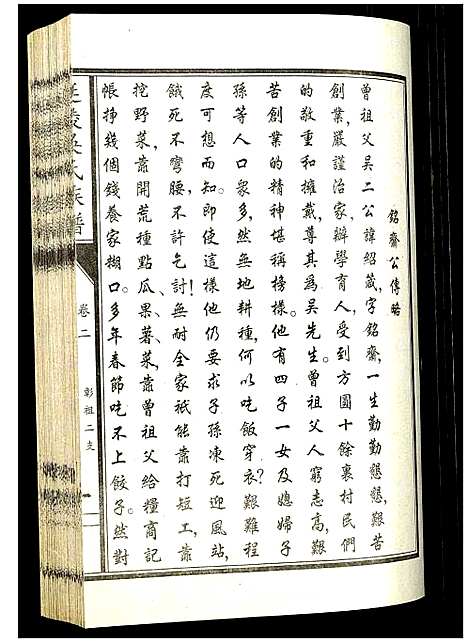 銘齋公傳略
曾祖父吴二公諱紹箴字銘齋,一生勤勤懇懇,艱苦
創業,嚴謹治家,辦學育人,受到方圓十餘裏村民們
的敬重和擁戴,尊其爲吴先生。曾祖父人窮志高,艱
苦創業的精神堪稱榜樣。他有四子一女及媳婦子
孫等人口衆多,然無地耕種,何以吃飯穿衣?艱難程
度可想而知。即使這樣他仍要求子孫凍死迎風站,
餓死不彎腰,不許乞討!無耐全家祇能靠打短工,靠
挖野菜,靠開荒種點瓜、果、薯、菜,靠曾祖父給糧商記
帳掙幾個錢養家糊口。多年春節吃不上餃子。然對
延陵吴氏族譜
卷二
彰祖二支
一